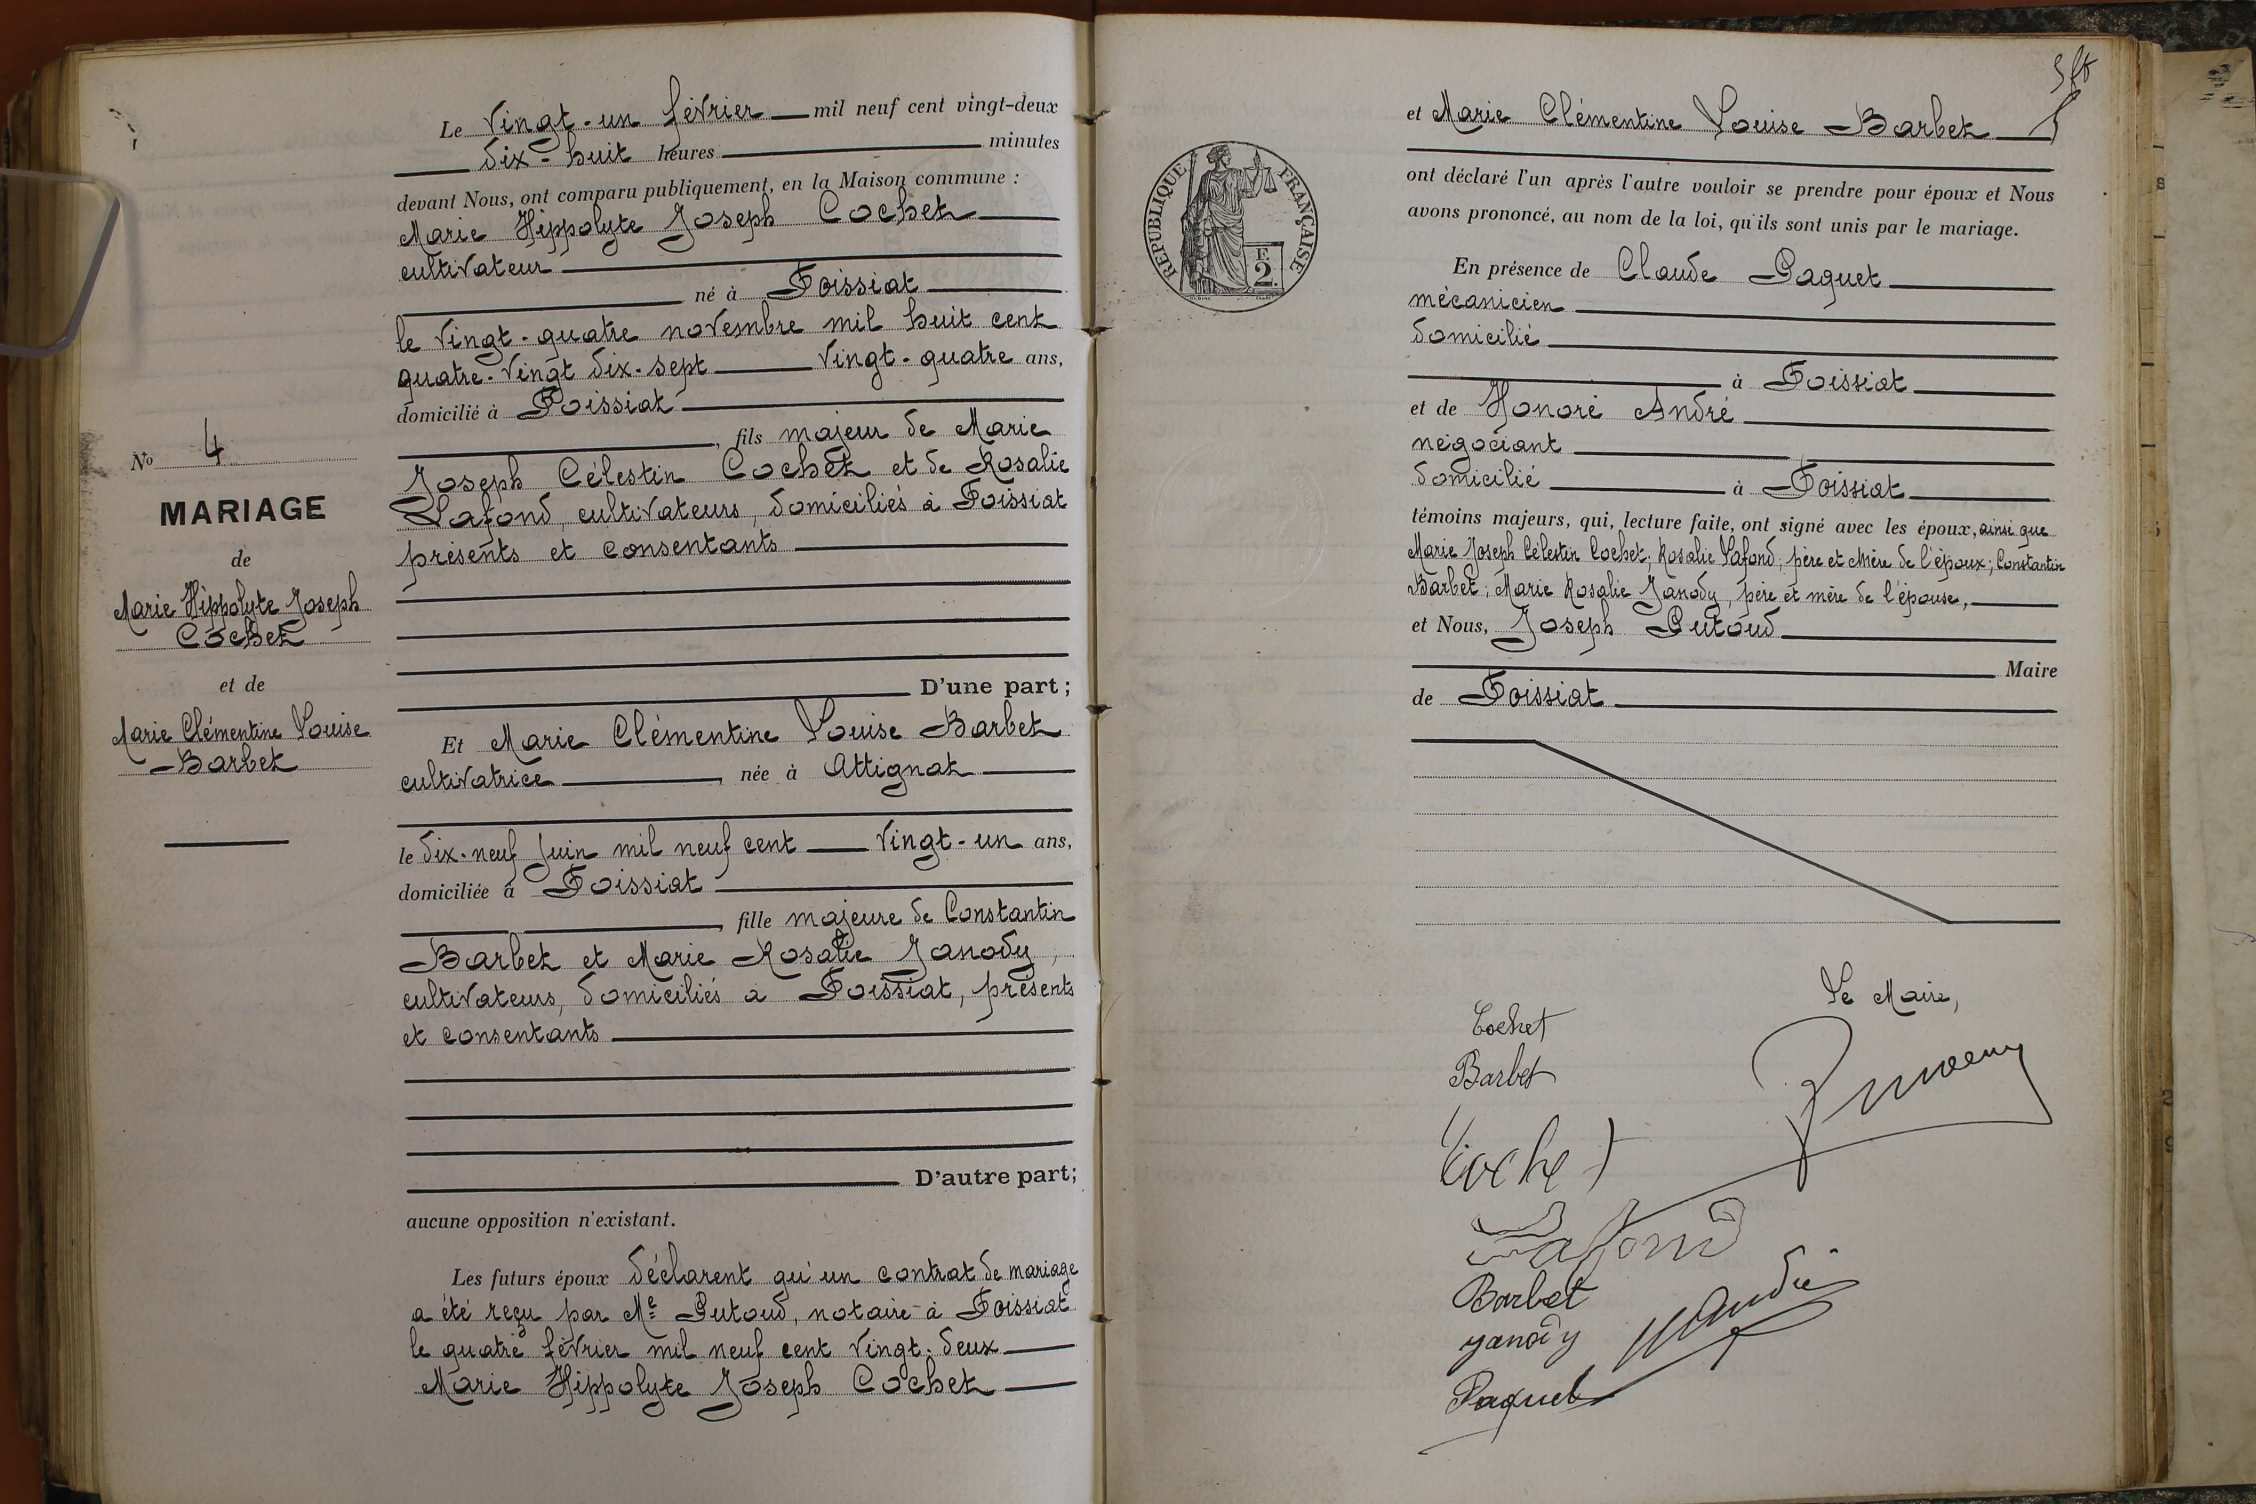 Le vingt-un février mil neuf cent vingt-deux
dix-huit heures minutes
devant Nous, ont comparu publiquement, en la Maison commune :
Marie Hippolyte Joseph Cochet
cultivateur
né à Foissiat
le vingt-quatre novembre mil huit cent
quatre-vingt dix-sept vingt-quatre ans,
domicilié à Foissiat
, fils majeur de Marie
Joseph Célestin Cochet et de Rosalie
Lafond, cultivateurs, domiciliés à Foissiat
présents et consentants
D'une part ;
Et Marie Clémentine Louise Barbet
cultivatrice, née à Attignat
le dix-neuf juin mil neuf cent vingt-un ans,
domiciliée à Foissiat
, fille majeure de Constantin
Barbet et Marie Rosalie Janody,
cultivateurs, domiciliés à Foissiat, présents
et consentants
D'autre part ;
aucune opposition n'existant.
Les futurs époux déclarent qu'un contrat de mariage
a été reçu par Me Putoud, notaire à Foissiat
le quatre février mil neuf cent vingt-deux
Marie Hippolyte Joseph Cochet
No 4
MARIAGE
de
Marie Hippolyte Joseph
Cochet
et de
Marie Clémentine Louise
Barbet
et Marie Clémentine Louise Barbet
ont déclaré l'un après l'autre vouloir se prendre pour époux et Nous
avons prononcé, au nom de la loi, qu'ils sont unis par le mariage.
En présence de Claude Paquet
mécanicien
domicilié
à Foissiat
et de Honoré André
négociant
domicilié à Foissiat
témoins majeurs, qui, lecture faite, ont signé avec les époux, ainsi que
Marie Joseph Célestin Cochet, Rosalie Lafond, père et mère de l'époux; Constantin
Barbet; Marie Rosalie Janody, père et mère de l'épouse,
et Nous, Joseph Putoud
Maire
de Foissiat
Le Maire,
Cochet
Barbet
Cochet
Lafond
Barbet
Janody
André
Paquet
RÉPUBLIQUE FRANÇAISE
F.
2